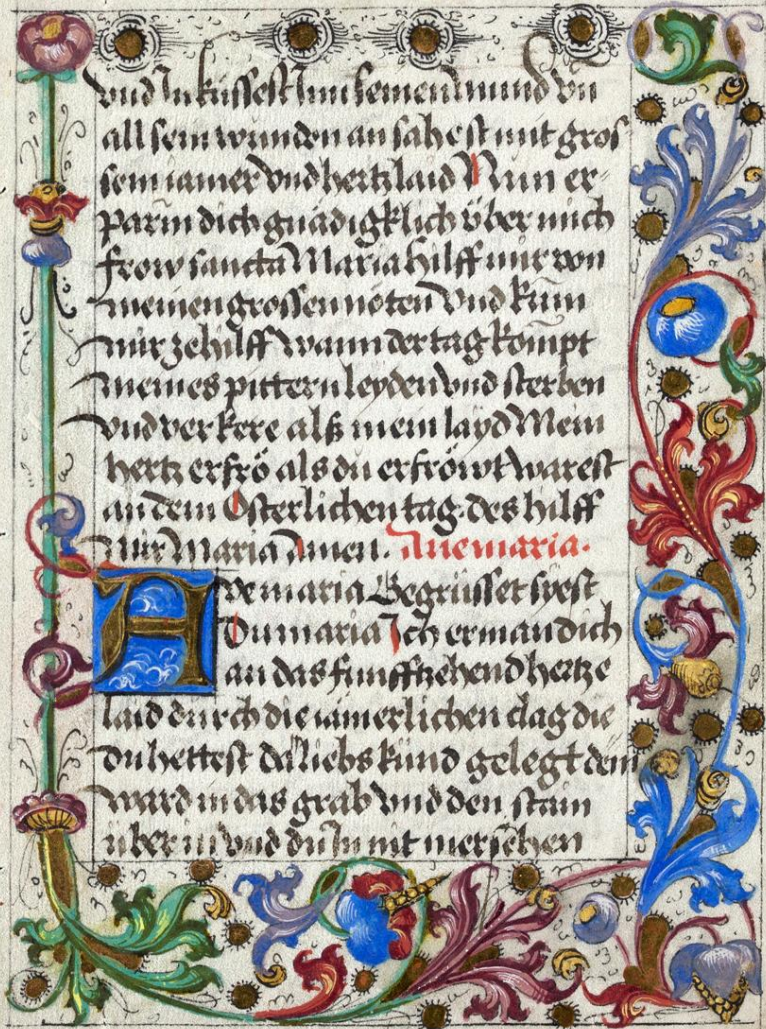 vnd In kussest Inn seinen mund vn
all sein wunden an sahest mit gros
sem iamer vnd hertzlaid Nun er-
parm dich gnädigklich über mich
frow sancta Maria hilff mir von
meinen grossen nöten Vnd kum
mir ze hilff Wann der tag kompt
meines pittern leyden vnd sterben
vnd verkere alß mein layd Mein
hertz erfrö als du erfröwt warest
an dem Osterlichen tag des hilff
Mir Maria Amen. Aue maria.
Aue maria Gegrüsset syest
Du maria Ich erman dich
an das funffzehend hertze
laid durch die iamerlichen clag die
Du hettest Da liebs kind gelegt dein
ward in das grab Vnd den stain
über in vnd du In nit mer sehen